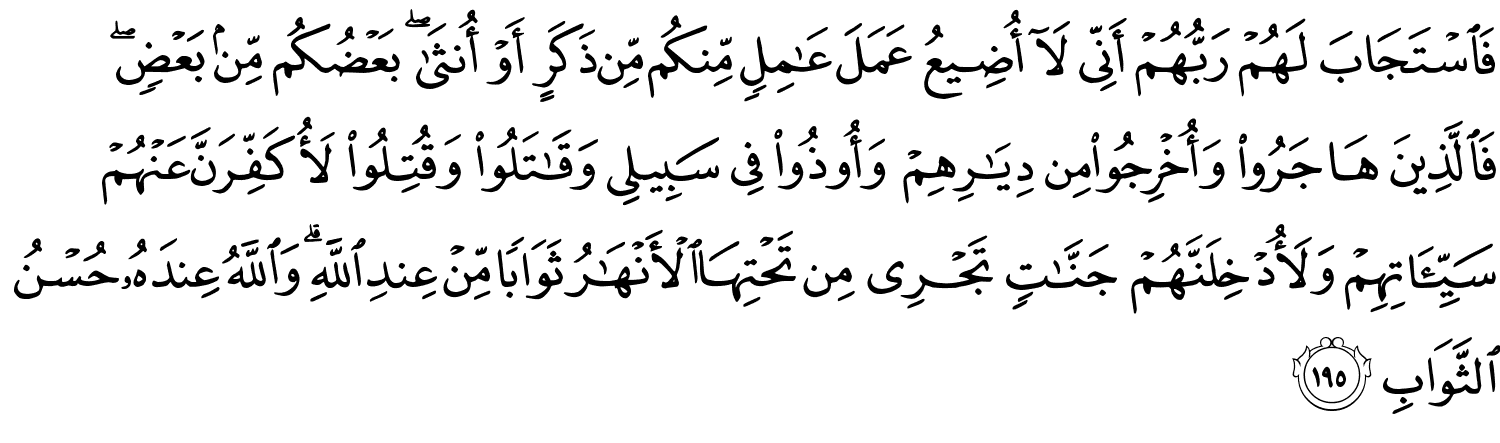 فَٱسۡتَجَابَ لَهُمۡ رَبُّهُمۡ أَنِّي لَآ أُضِيعُ عَمَلَ عَٰمِلٖ مِّنكُم مِّن ذَكَرٍ أَوۡ أُنثَىٰۖ بَعۡضُكُم مِّنۢ بَعۡضٖۖ
فَٱلَّذِينَ هَاجَرُواْ وَأُخۡرِجُواْ مِن دِيَٰرِهِمۡ وَأُوذُواْ فِي سَبِيلِي وَقَٰتَلُواْ وَقُتِلُواْ لَأُكَفِّرَنَّ عَنۡهُمۡ
سَيِّـَٔاتِهِمۡ وَلَأُدۡخِلَنَّهُمۡ جَنَّٰتٖ تَجۡرِي مِن تَحۡتِهَا ٱلۡأَنۡهَٰرُ ثَوَابٗا مِّنۡ عِندِ ٱللَّهِۚ وَٱللَّهُ عِندَهُۥ حُسۡنُ
ٱلثَّوَابِ ١٩٥